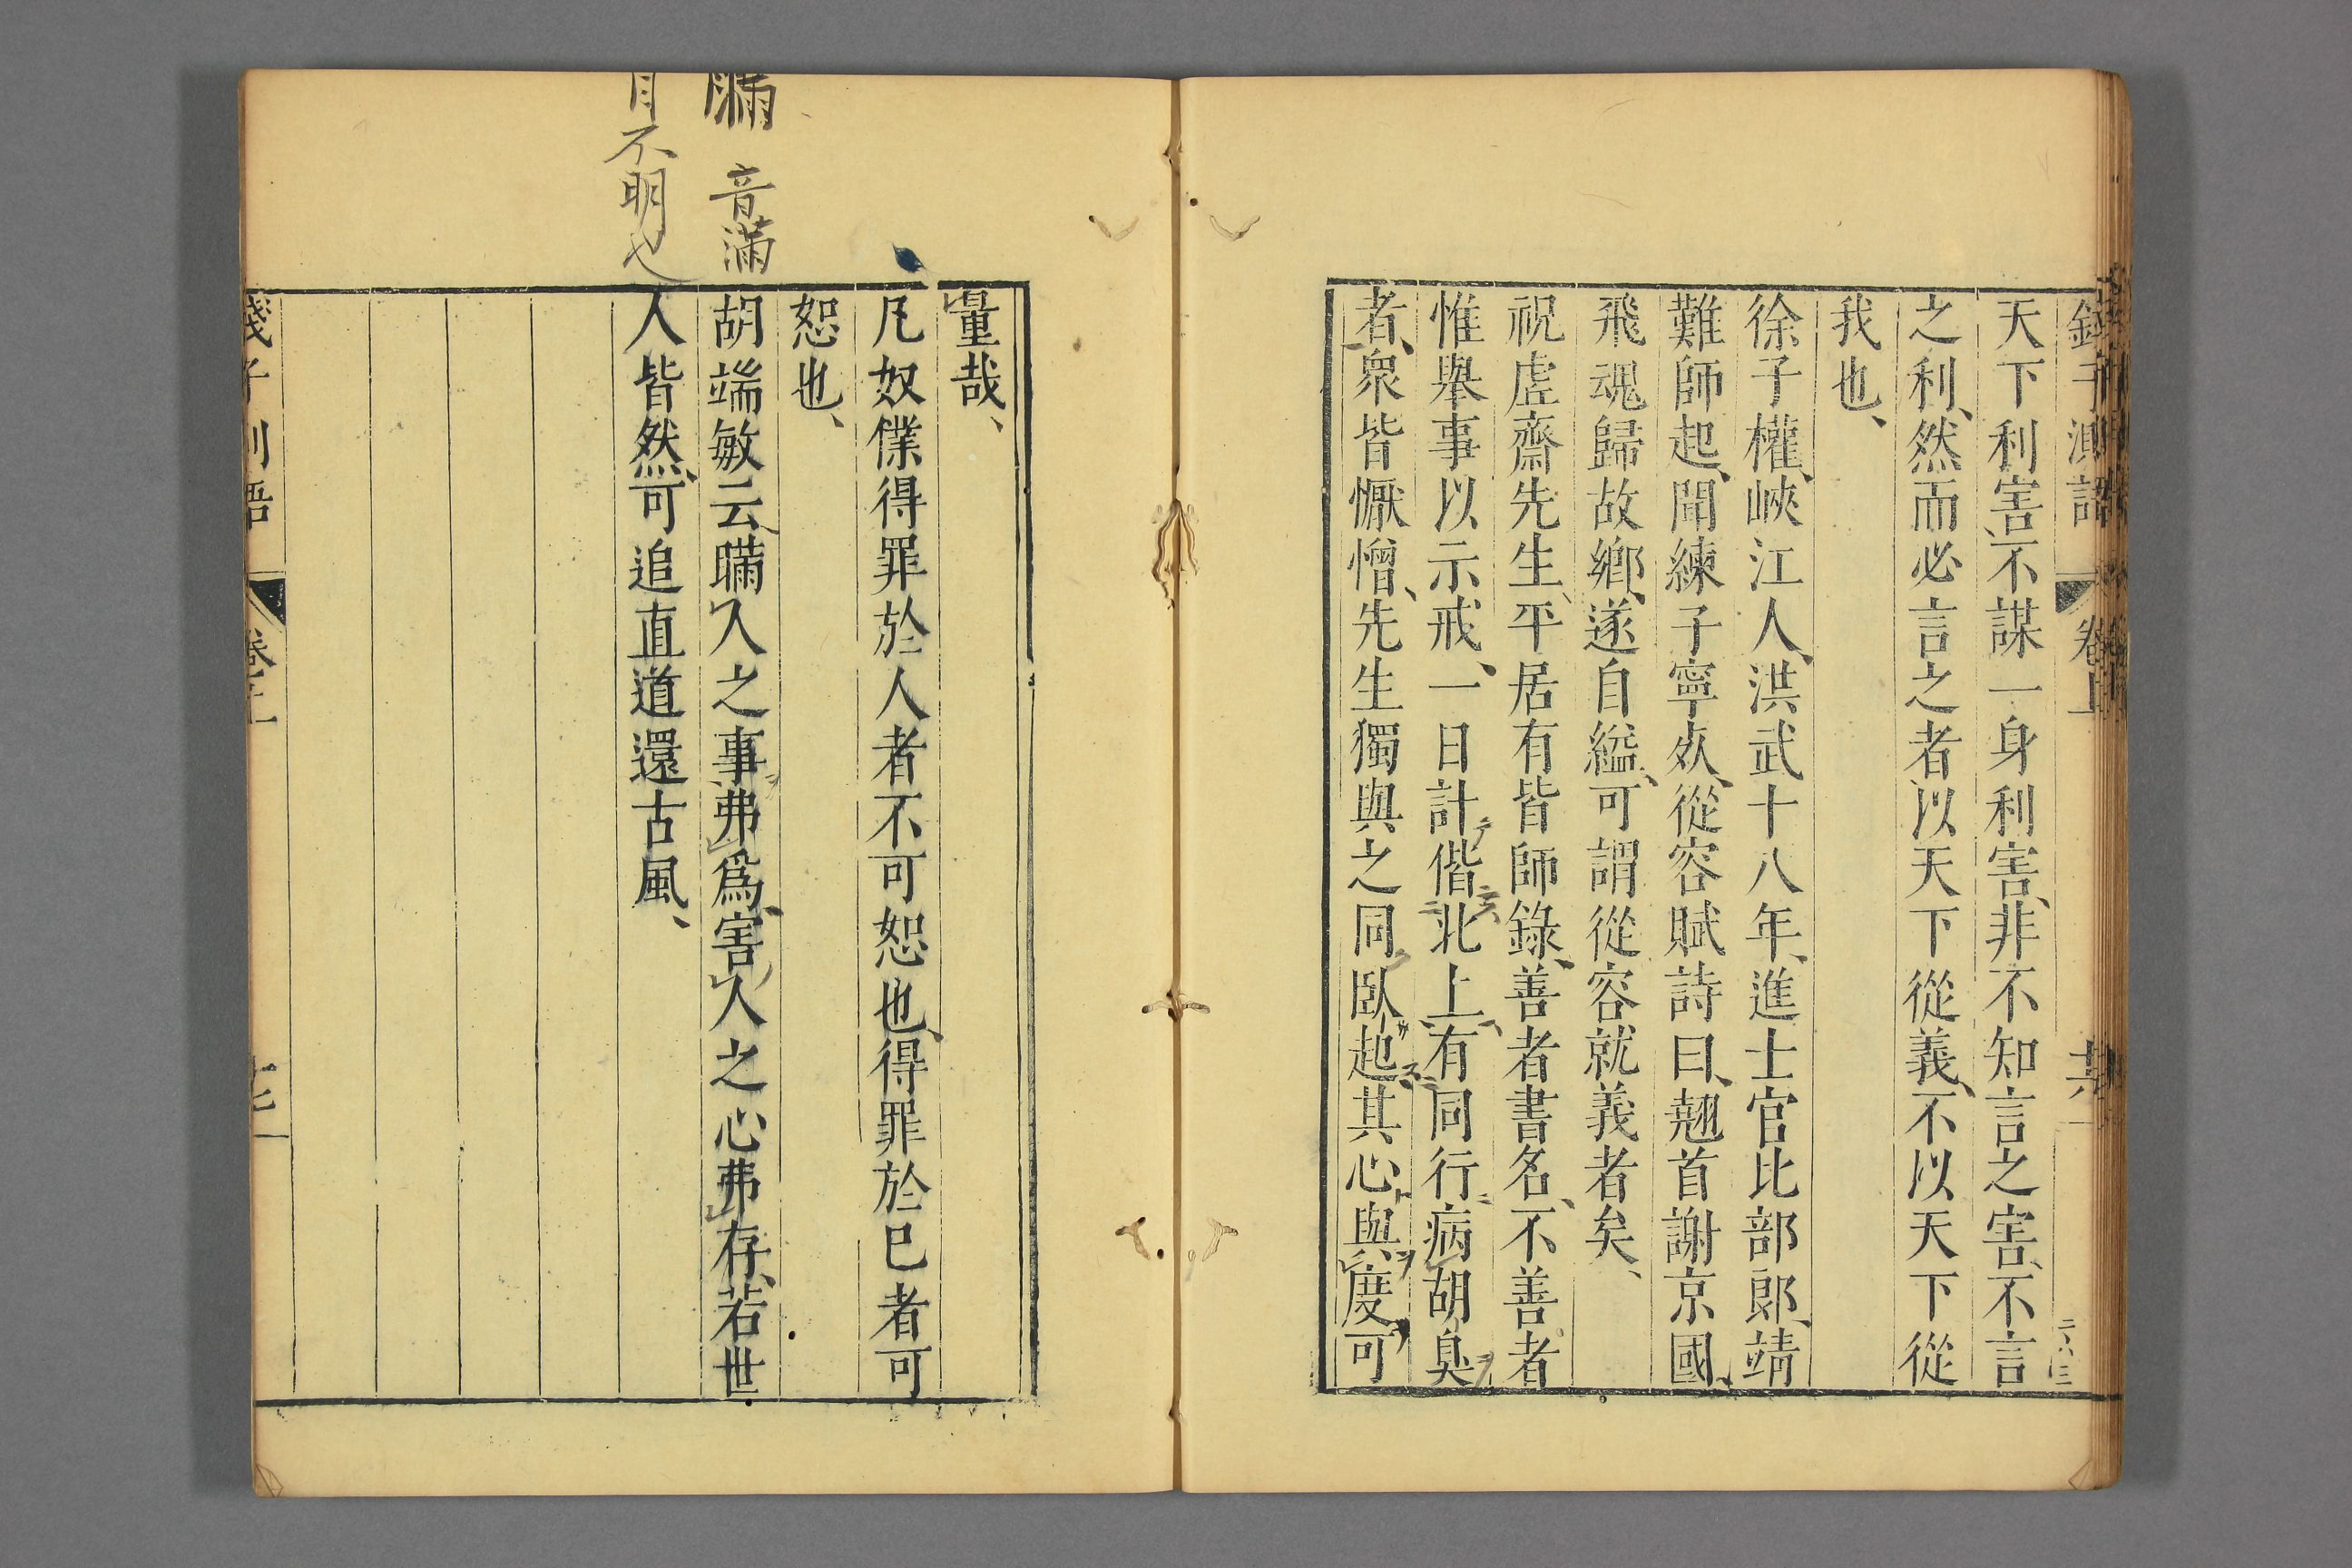 錢子測語 卷上 共
天下利害、不謀一身利害、非不知言之害、不言
之利、然而必言之者以天下從義、不以天下從
我也、
徐子權、峽江人、洪武十八年、進士官比部郎、靖
難師起、聞練子寧死、從容賦詩曰、翹首謝京國、
飛魂歸故鄉、遂自縊、可謂從容就義者矣、
祝虛齋先生、平居有皆師錄、善者書名、不善者
惟舉事以示戒、一日計偕北上、有同行病胡臭
者、衆皆懨憎、先生獨與之同臥起、其心與度可
量哉、
凡奴僕得罪於人者不可恕也、得罪於已者可
恕也、
胡端敏云、瞞人之事弗爲、害人之心弗存、若世
人皆然、可追直道還古風、
錢子測語 卷上
音滿
目不明也